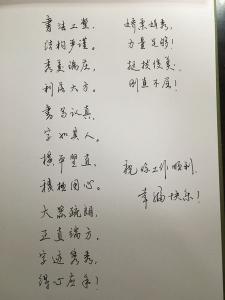 书法工整，
结构严谨。
秀美端庄，
利落大方。
书写认真，
字如其人。
横平竖直，
积极用心。
大气疏朗，
正直端方，
字迹隽秀，
得心应手！
娇柔娟秀，
力量足够！
挺拔俊美，
刚直不屈！
祝你工作顺利，
幸福快乐！